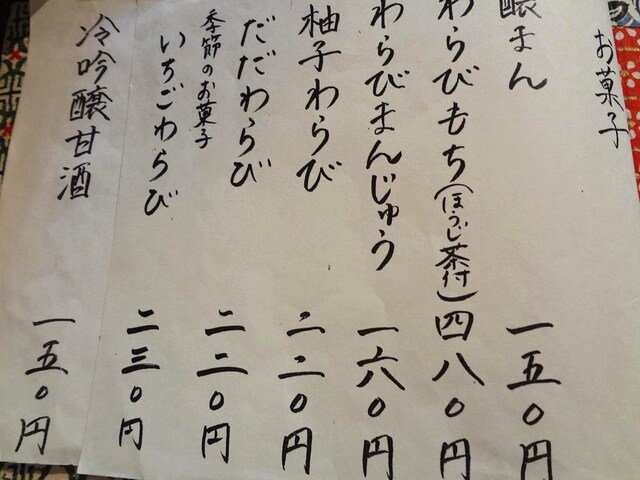 お菓子
醸まん 一五〇円
わらびもち(ほうじ茶付) 四八〇円
わらびまんじゅう 一六〇円
柚子わらび 二二〇円
だだわらび 二二〇円
季節のお菓子
いちごわらび 二三〇円
冷吟醸甘酒 一五〇円